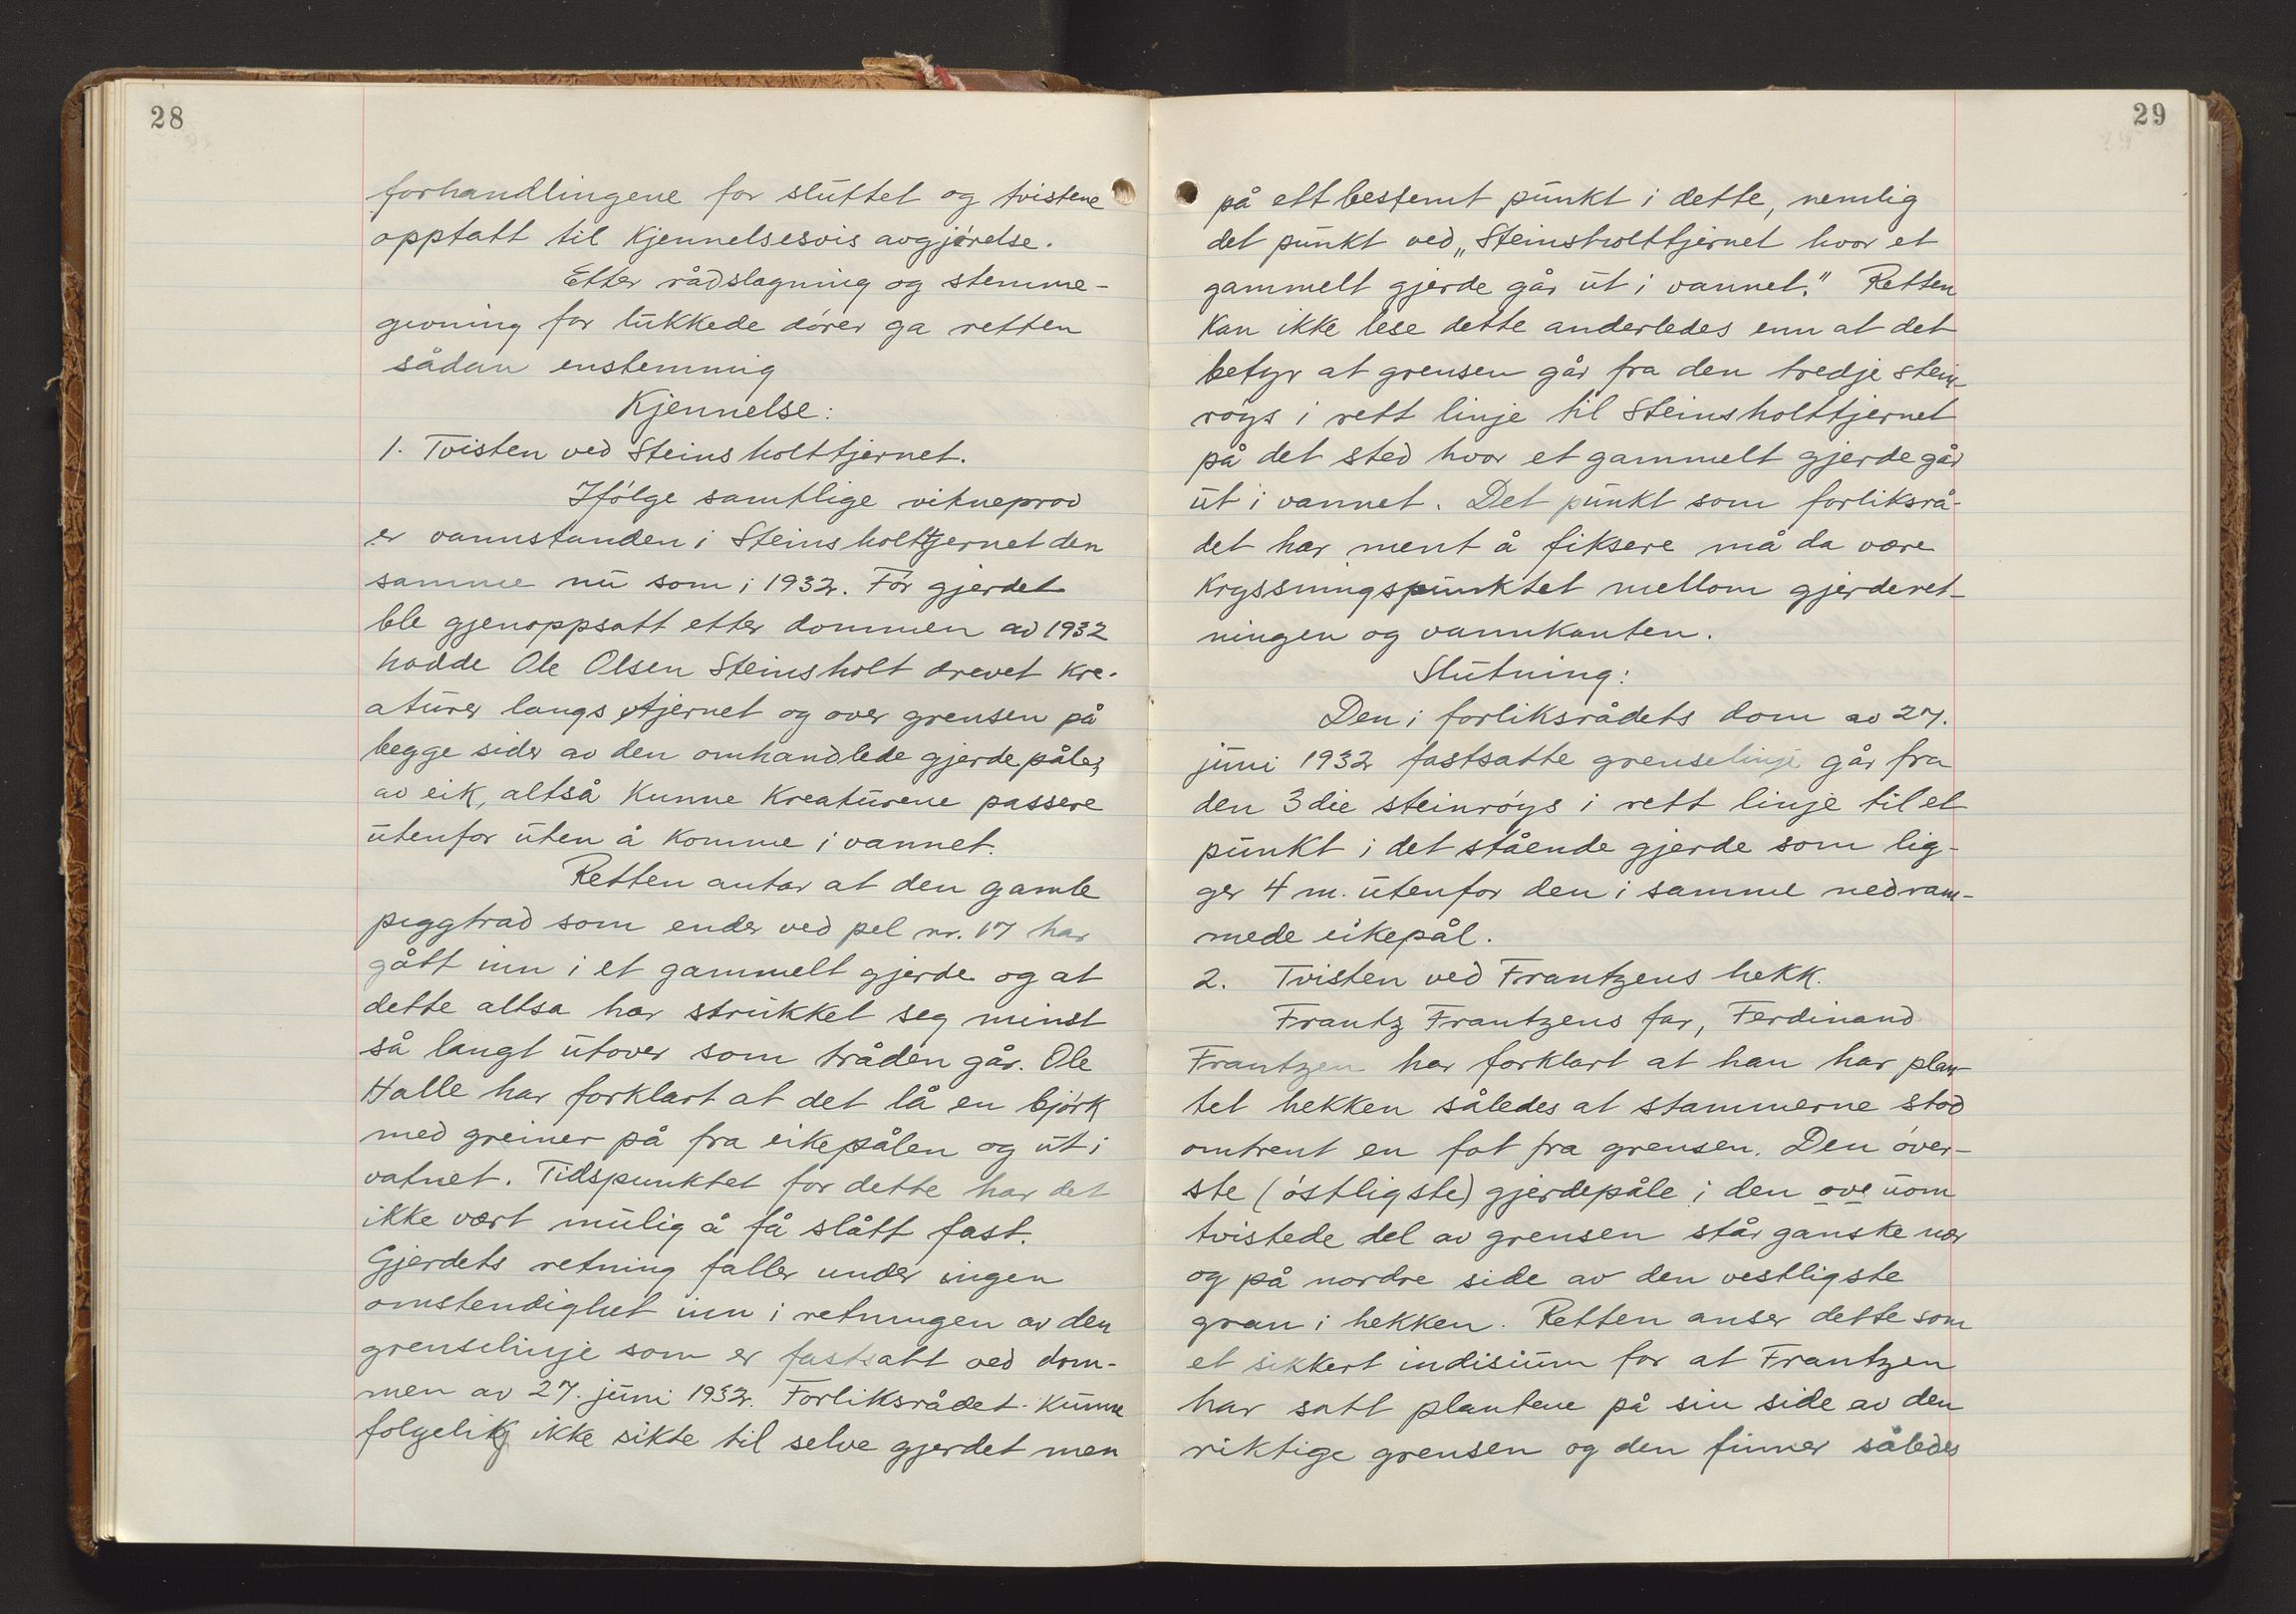 28
forhandlingene for sluttet og tvistene
opptatt til kjennelsesvis avgjørelse.
Etter rådslagning og stemme-
givning for lukkede dører ga retten
sådan enstemmig
Kjennelse:
1. Tvisten ved Steinsholttjernet.
Ifølge samtlige vitneprov
er vannstanden i Steinsholttjernet den
samme nu som i 1932. Før gjerdet
ble gjenoppsatt etter dommen av 1932
hadde Ole Olsen Steinsholt drevet kre-
aturer langs tjernet og over grensen på
begge sider av den omhandlede gjerdepåler
av eik, altså kunne kreaturene passere
utenfor uten å komme i vannet.
Retten antar at den gamle
piggtrad som ender ved pel nr. 17 har
gått inn i et gammelt gjerde og at
dette altsa har strukket seg minst
så langt utover som tråden går. Ole
Halle har forklart at det lå en bjørk
med greiner på fra eikepålen og ut i
vatnet. Tidspunktet for dette har det
ikke vært mulig å få slått fast.
Gjerdets retning faller under ingen
omstendighet inn i retningen av den
grenselinje som er fastsatt ved dom-
men av 27. juni 1932. Forliksrådet kunne
folgelig ikke sikte til selve gjerdet men
29
på ett bestemt punkt i dette, nemlig
det punkt ved „Steinsholttjernet hvor et
gammelt gjerde går ut i vannet." Retten
kan ikke lese dette anderledes enn at det
betyr at grensen går fra den tredje stein-
røys i rett linje til Steinsholttjernet
på det sted hvor et gammelt gjerde går
ut i vannet. Det punkt som forliksrå-
det har ment å fiksere må da være
kryssningspunktet mellom gjerderet-
ningen og vannkanten.
Slutning:
Den i forliksrådets dom av 27.
juni 1932 fastsatte grenselinje går fra
den 3die steinrøys i rett linje til et
punkt i det stående gjerde som lig-
ger 4 m. utenfor den i samme nedram-
mede eikepål.
2. Tvisten ved Frantzens hekk.
Frantz Frantzens far, Ferdinand
Frantzen har forklart at han har plan-
tet hekken således at stammerne stod
omtrent en fot fra grensen. Den øver-
ste (østligste) gjerdepåle i den uom
tvistede del av grensen står ganske nær
og på nordre side av den vestligste
gran i hekken. Retten anser dette som
et sikkert indisium for at Frantzen
har satt plantene på sin side av den
riktige grensen og den finner således